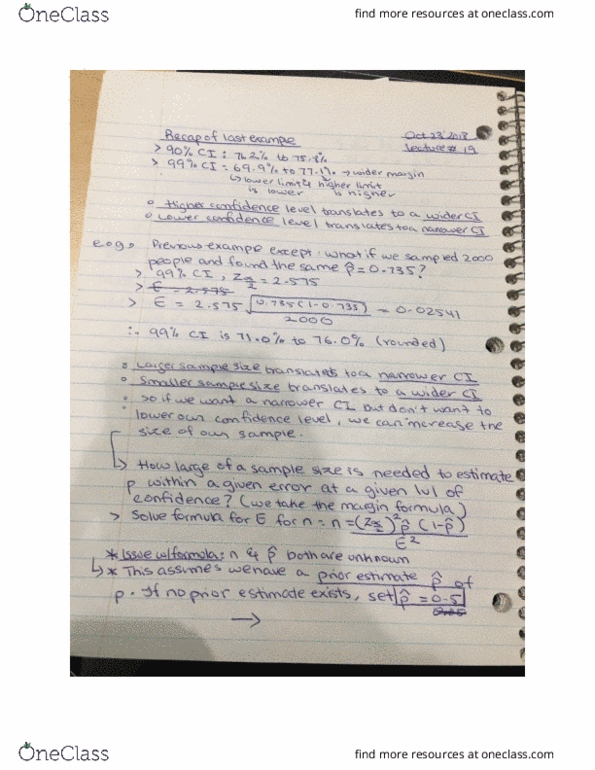 OneClass
find more resources at oneclass.com
Oct 23 2018
Recap of last example
Lecture # 19
> 90% CI : 71.2% to 75.8%
> 99% CI : 69.9% to 77.1% → wider margin
↳ lower limit & higher limit
is lower is higher
Higher confidence level translates to a wider CI
Lower confidence level translates to a narrower CI
e.g., Previous exampe except: what if we sampled 2000
people and found the same p̂ = 0.735?
> 99% CI, Zα/2 = 2.575
> E = 2.575
> E = 2.575 √0.735(1-0.735)/2000 = 0.02541
∴ 99% CI is 71.0% to 76.0% (rounded)
Larger sample size translates to a narrower CI
Smaller sample size translates to a wider CI
so if we want a narrower CI but don't want to
lower our confidence level, we can increase the
size of our sample.
↳ How large of a sample size is needed to estimate
p within a given error at a given lvl of
confidence? (we take the margin formula)
> Solve formula for E for n = n = (Zα/2)² p̂ (1-p̂)
E²
* Issue w/ formula: n & p̂ both are unknown
↳ * This assumes we have a prior estimate p̂ of
p. If no prior estimate exists, set p̂ = 0.5
→
OneClass
find more resources at oneclass.com